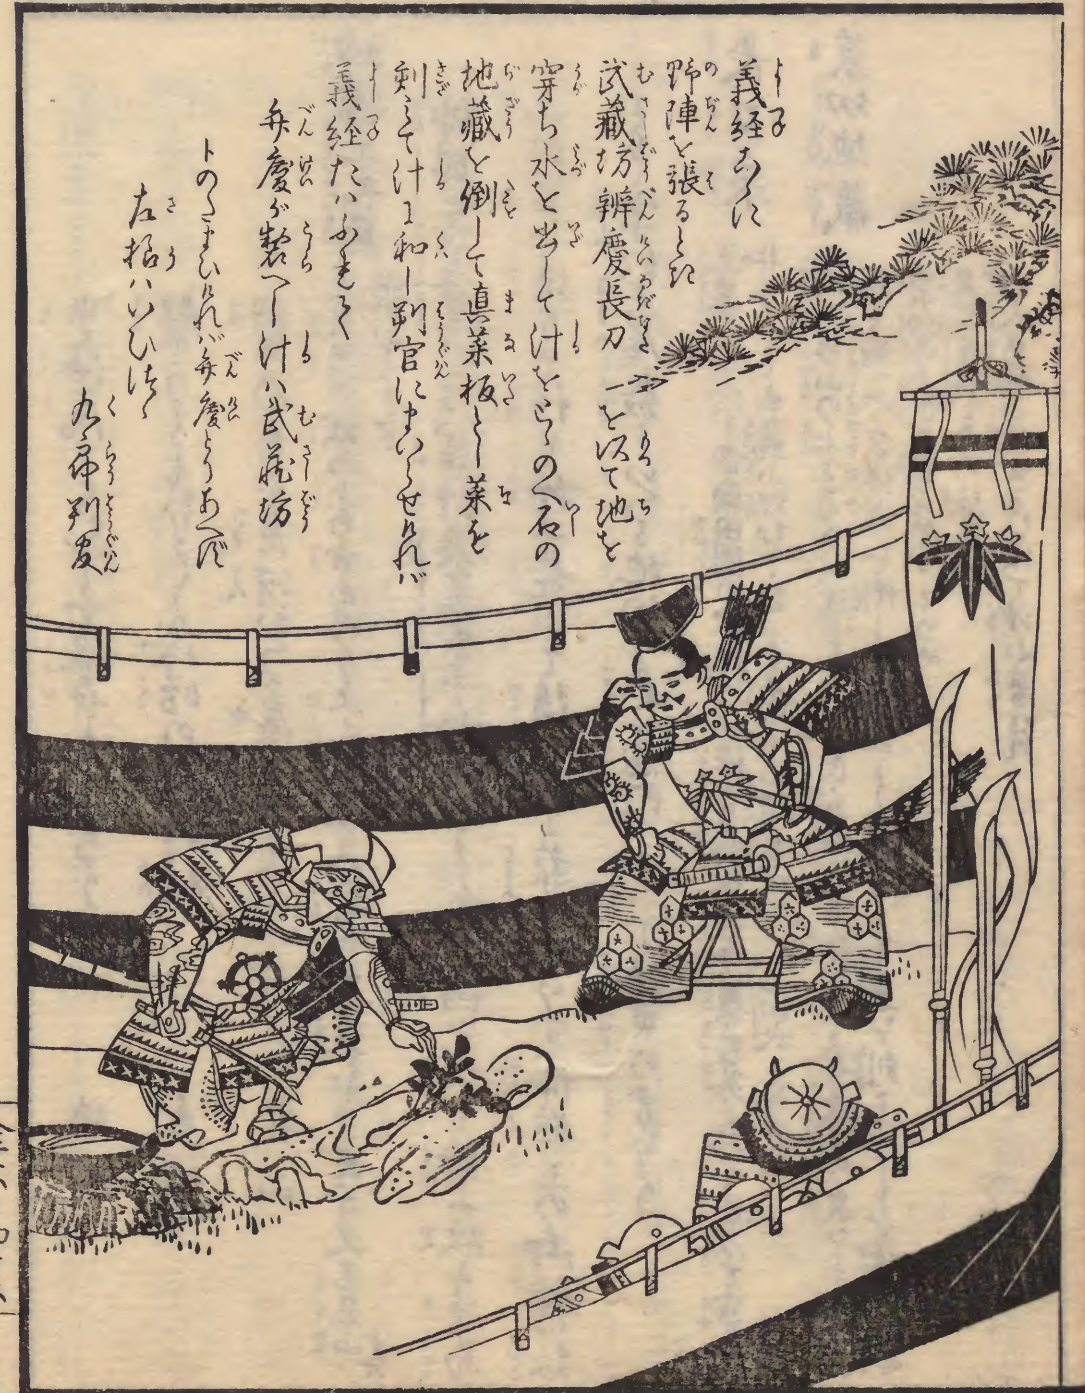 義経こゝに
野陣を張るとき
武藏坊辨慶長刀を以て地を
穿ち水を出して汁をとゝのへ石の
地藏を倒して真菜板とし菜を
刻て汁に和し判官にまいらせけれバ
義経たハふれて
弁慶が製へし汁ハ武蔵坊
トのたまひけれバ弁慶とりあへず
左様ハいひ
九郎判官